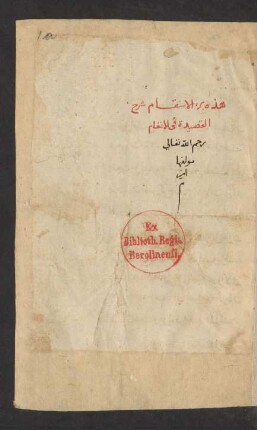 هذه برء الاسقام شرح
القصيدة في الانغام
رحم الله تعالى
مولفها
امين
م
Ex
Biblioth. Regia
Berolinensi.